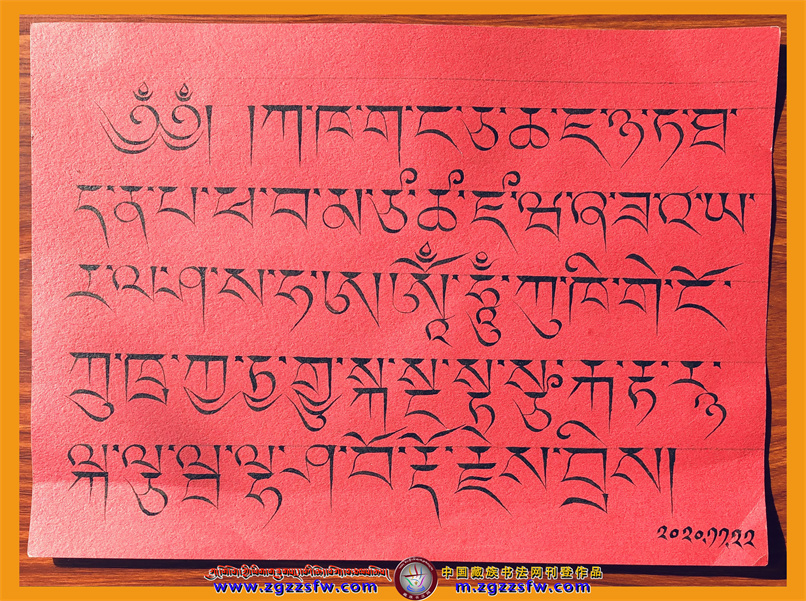 ༄༅། །ཀ་ཁ་ག་ང་ཅ་ཆ་ཇ་ཉ་ཏ་ཐ་
ད་ན་པ་ཕ་བ་མ་ཙ་ཚ་ཛ་ཝ་ཞ་ཟ་འ་ཡ་
ར་ལ་ཤ་ས་ཧ་ཨ་ཨོཾ་ཧཱུྃ་ཀུ་ཁི་གེ་ངོ་
ཀྲུ་ཁྲ་ཀྱ་ཏྱ་གྱུ་སྐ་སྔ་
རྐ་རྟ་རྙ་
ལྐ་ལྕུ་ལྔ་ལྷ་ཤ་བོ་དོ་རྗེས་བྲིས།།
༢༠༢༠.༡༡.༢༢
www.zgzzsfw.com
中国藏族书法网刊登作品
m.zgzzsfw.com